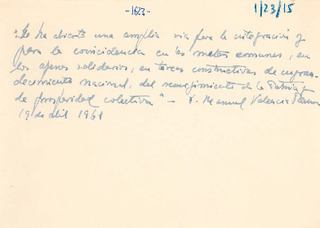 -1623-
1/23/15
"Se ha abierto una amplia via para la integración y
para la coincidencia en las metas comunes, en
los afanes solidarios, en tareas constructivas de
nacional, del resurgimiento de la Patria y
de prosperidad colectiva" - F. Manuel Valencia
19 de abril 1961